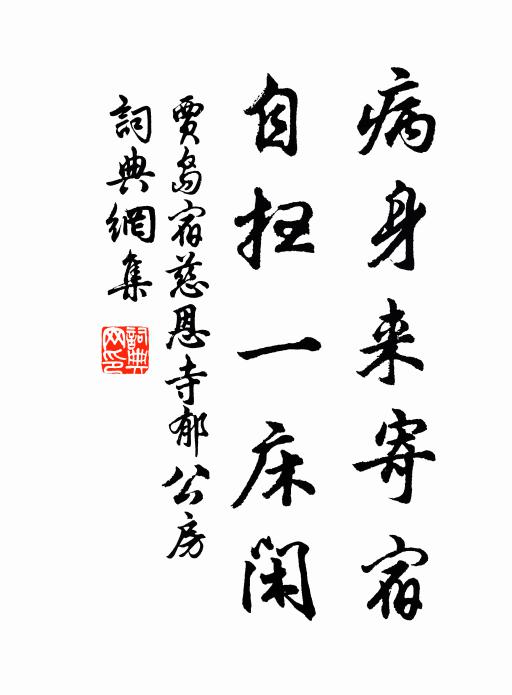 病身来寄宿
自扫一床闲
賈島宿慈恩寺郁公房
詞典網集
詞典网印